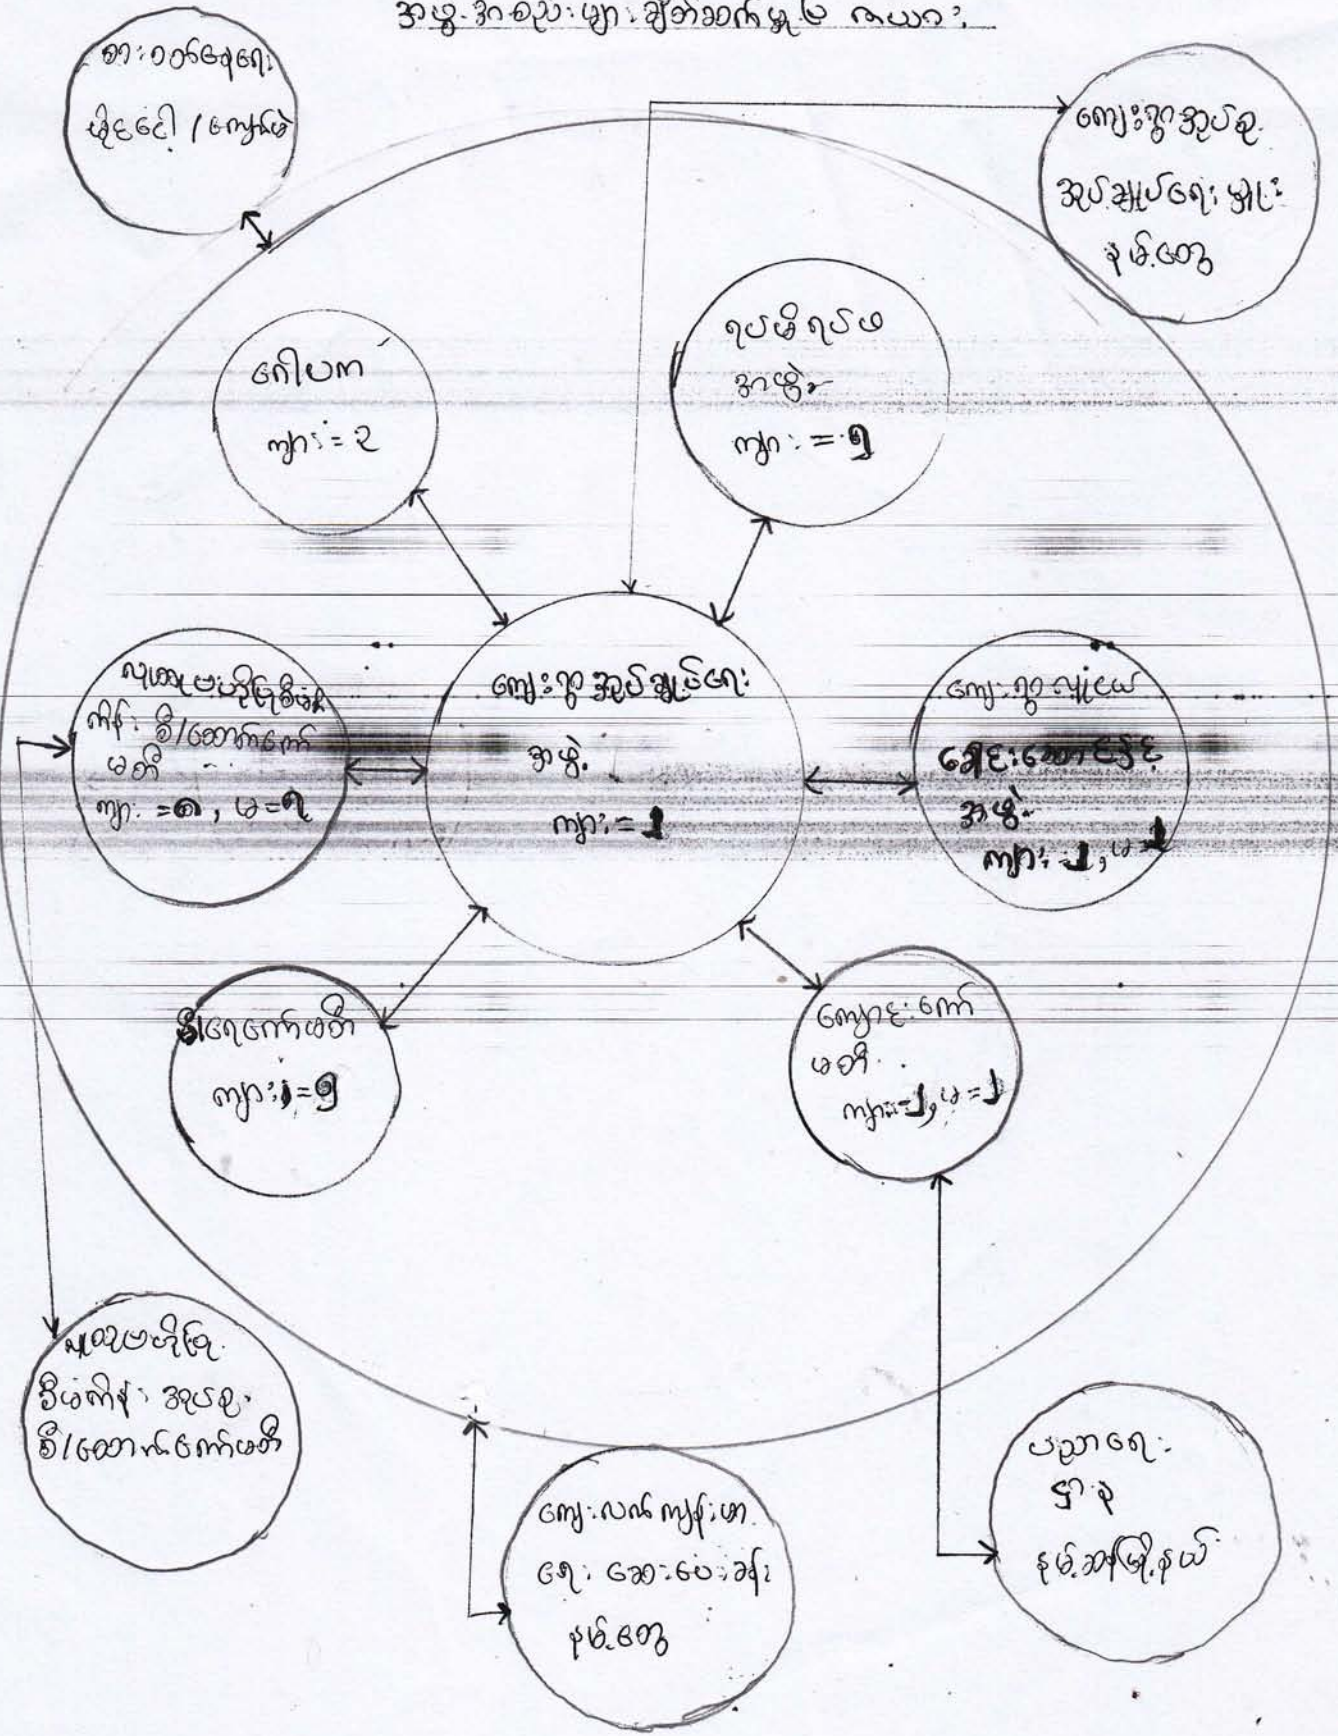 အဖွဲ့အစည်းများချိတ်ဆက်မှုပြ ဇယား
စားဝတ်နေရေး
မိုင်းငေါ့ / ကျောက်မဲ
ကျေးရွာအုပ်စု
အုပ်ချုပ်ရေးမှူး
နမ့်တွေ
ဂေါပက
ကျား = ၃
ရပ်မိရပ်ဖ
အဖွဲ့
ကျား = ၅
လူထုဗဟိုပြုစီမံ
ကိန်း စီ/ထောက်ကော်
မတီ
ကျား =၈, မ=၇
ကျေးရွာအုပ်ချုပ်ရေး
အဖွဲ့
ကျား = ၂
ကျေးရွာလူငယ်
ခေါင်းဆောင်နှင့်
အဖွဲ့
ကျား = ၂, မ=၂
စီ/ရေကော်မတီ
ကျား = ၅
ကျောင်းကော်
မတီ
ကျား=၂, မ=၂
လူထုဗဟိုပြု
စီမံကိန်း အုပ်စု
စီ/ထောက်ကော်မတီ
ကျေးလက်ကျန်းမာ
ရေး ဆေးပေးခန်း
နမ့်တွေ
ပညာရေး
ဌာန
နမ့်ဆန်မြို့နယ်